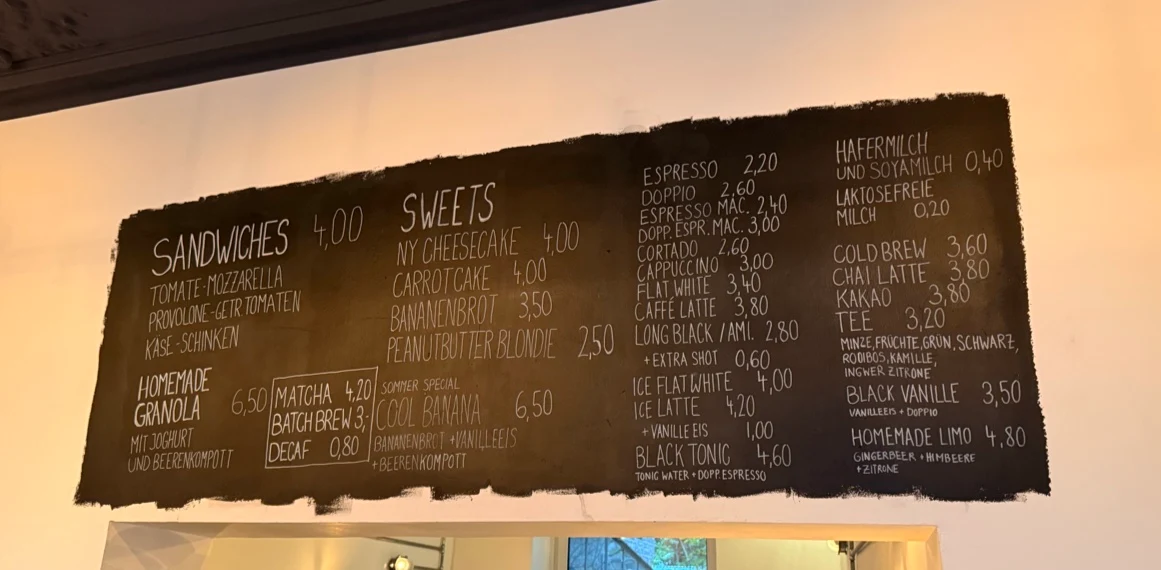 SANDWICHES 4,00
TOMATE-MOZZARELLA
PROVOLONE-GETR TOMATEN
KÄSE-SCHINKEN
HOMEMADE
GRANOLA 6,50
MIT JOGHURT
UND BEERENKOMPOTT
MATCHA 4,20
BATCH BREW 3,-
DECAF 0,80
SWEETS
NY CHEESECAKE 4,00
CARROTCAKE 4,00
BANANENBROT 3,50
PEANUTBUTTER BLONDIE 2,50
SOMMER SPECIAL
COOL BANANA 6,50
BANANENBROT + VANILLEEIS
+ BEERENKOMPOTT
ESPRESSO 2,20
DOPPIO 2,60
ESPRESSO MAC. 2,40
DOPP. ESPR. MAC. 3,00
CORTADO 2,60
CAPPUCCINO 3,00
FLAT WHITE 3,40
CAFFÈ LATTE 3,80
LONG BLACK / AMI. 2,80
+ EXTRA SHOT 0,60
ICE FLAT WHITE 4,00
ICE LATTE 4,20
+ VANILLE EIS 1,00
BLACK TONIC 4,60
TONIC WATER + DOPP. ESPRESSO
HAFERMILCH
UND SOYAMILCH 0,40
LAKTOSEFREIE
MILCH 0,20
COLD BREW 3,60
CHAI LATTE 3,80
KAKAO 3,80
TEE 3,20
MINZE, FRÜCHTE, GRÜN, SCHWARZ,
ROOIBOS, KAMILLE,
INGWER ZITRONE
BLACK VANILLE 3,50
VANILLEEIS + DOPPIO
HOMEMADE LIMO 4,80
GINGERBEER + HIMBEERE
+ ZITRONE